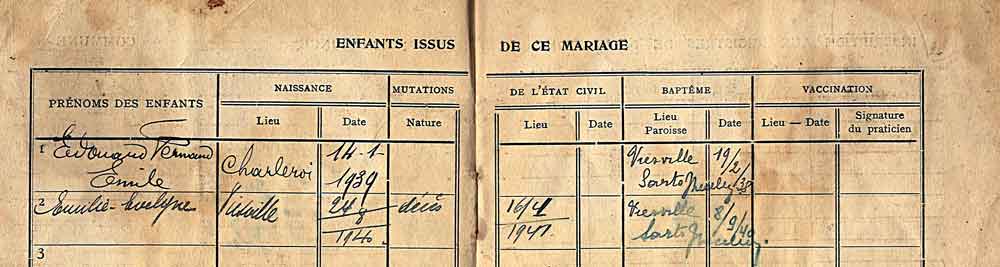 ENFANTS ISSUS DE CE MARIAGE
PRÉNOMS DES ENFANTS NAISSANCE MUTATIONS DE L'ÉTAT CIVIL BAPTÊME VACCINATION
Lieu Date Nature Lieu Date Lieu Paroisse Date Lieu — Date Signature du praticien
1 Edouard Fernand Charleroi 14-1- Viesville 19/2/
Emile 1939 39
2 Emilie-Evelyne Viesville 24/8 décès 16/4 Viesville 8/9/40
1940. 1941.
3